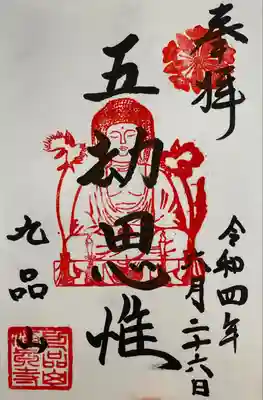 奉拝
令和四年
六月二十六日
五劫思惟
九品山